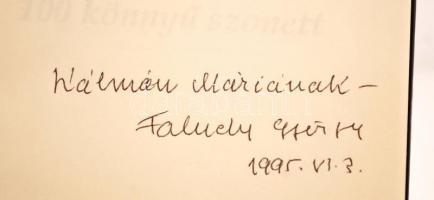 100 könnyű szonett
Kálmán Máriának –
Faludy György
1995. VI. 3.